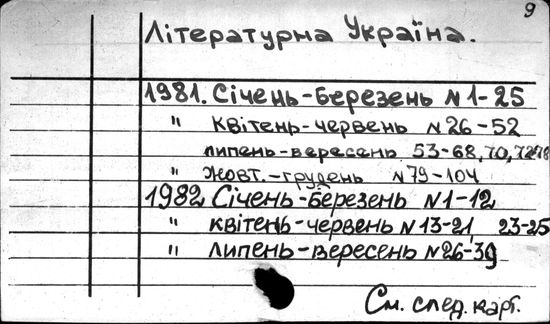 9
Літературна Україна.
1981. Січень-Березень N 1-25
" квітень-червень N 26-52
липень-вересень 53-68, 70, 72-78
" жовт.-грудень N 79-104
1982 Січень-Березень N 1-12
" квітень-червень N 13-21, 23-25
" липень-вересень N 26-39
См. след. карт.